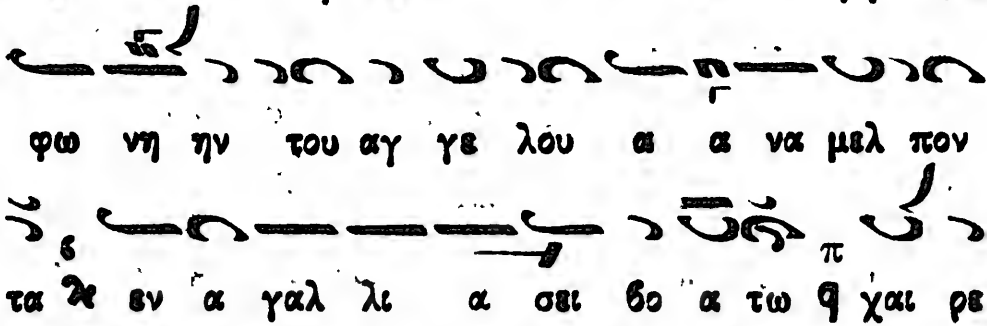 φω νη ην του αγ γε λου α α να μελ πον
τα εν α γαλ λι α σει βο α τω π χαι ρε